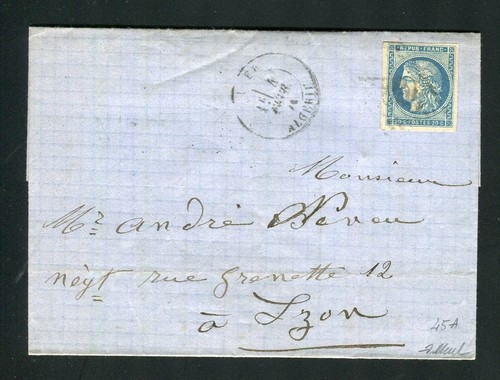 REPUB. FRANC.
20 C. POSTES 20 C.
Monsieur
Mr. André Neveu
négt rue Grenette 12
à Lyon
45A